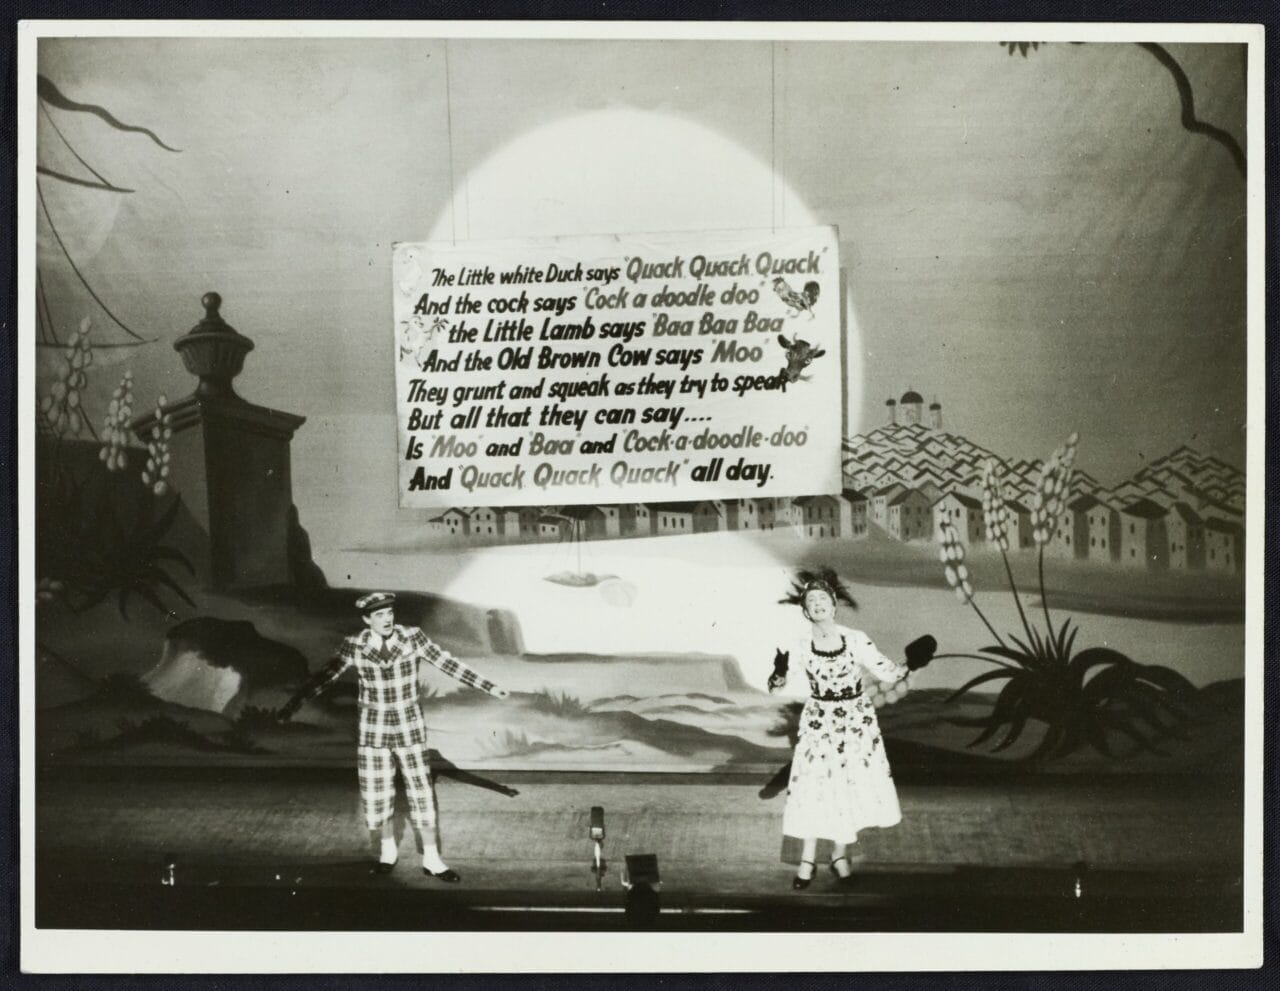 The Little white Duck says "Quack Quack Quack"
And the cock says "Cock a doodle doo"
the Little Lamb says "Baa Baa Baa"
And the Old Brown Cow says "Moo"
They grunt and squeak as they try to speak
But all that they can say....
Is "Moo" and "Baa" and "Cock-a-doodle-doo"
And "Quack Quack Quack" all day.